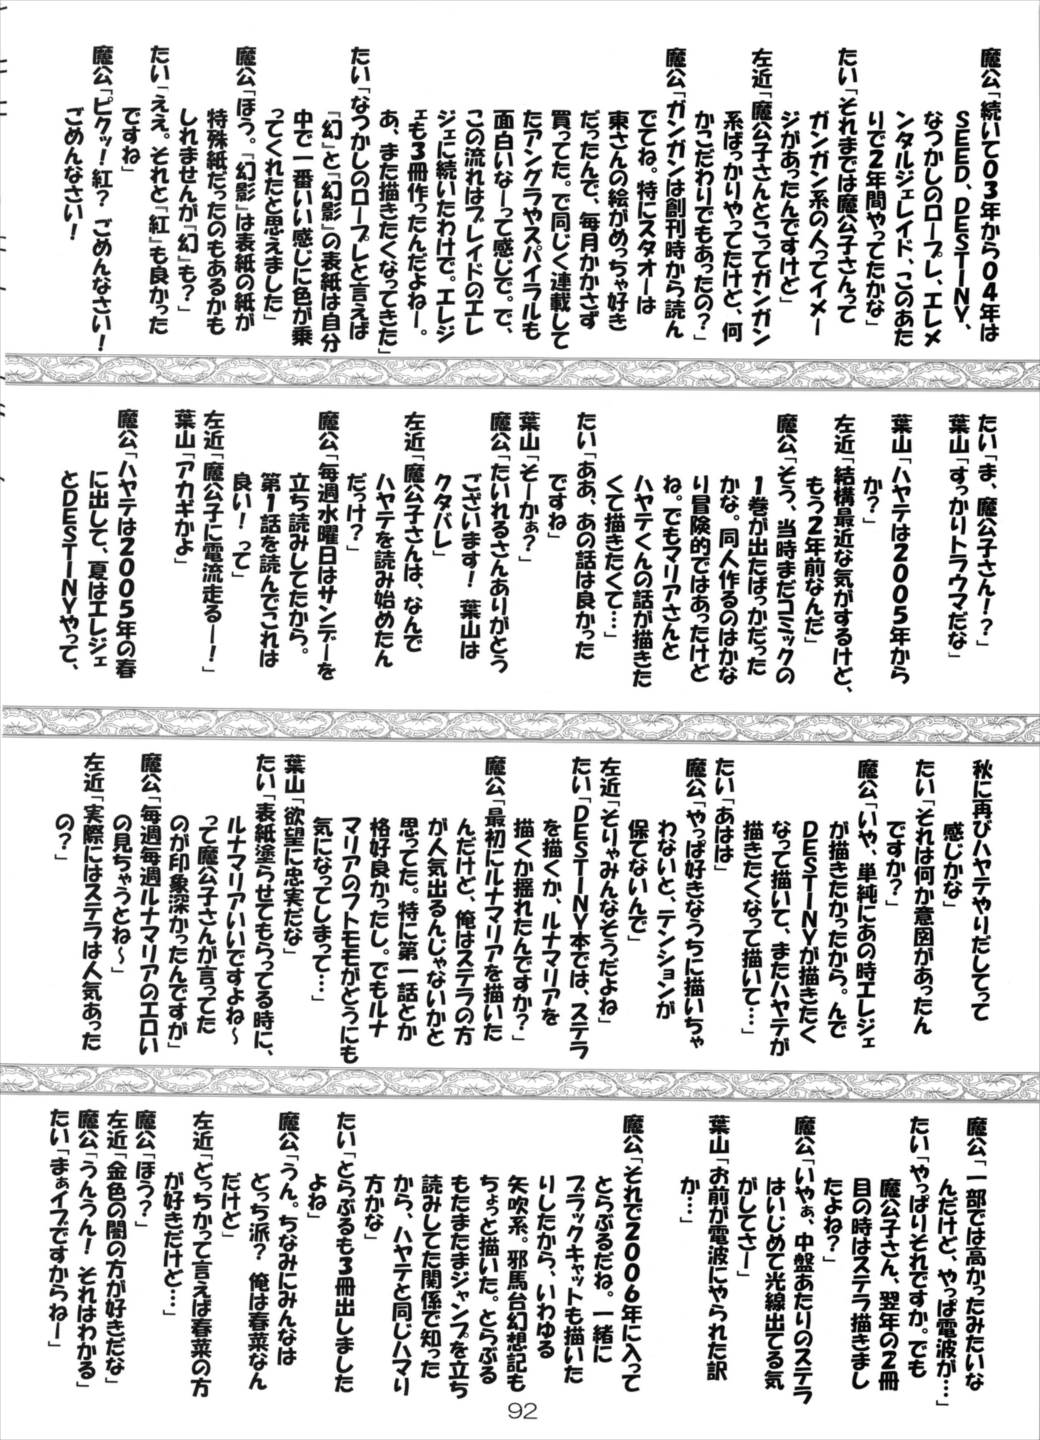 魔公「続いて03年から04年は
SEED、DESTINY、
なつかしのロープレ、エレメ
ンタルジェレイド、このあた
りで2年間やってたかな」
たい「それまでは魔公子さんって
ガンガン系の人ってイメー
ジがあったんですけど」
左近「魔公子さんとこってガンガン
系ばっかりやってたけど、何
かこだわりでもあったの？」
魔公「ガンガンは創刊時から読ん
でてね。特にスタオーは
東さんの絵がめっちゃ好き
だったんで、毎月かかさず
買ってた。で同じく連載して
たアングラやスパイラルも
面白いなーって感じで。で、
この流れはブレイドのエレ
ジェに続いたわけで。エレジ
ェも3冊作ったんだよねー。
あ、また描きたくなってきた」
たい「なつかしのロープレと言えば
『幻』と『幻影』の表紙は自分
中で一番いい感じに色が乗
ってくれたと思えました」
魔公「ほう。『幻影』は表紙の紙が
特殊紙だったのもあるかも
しれませんが『幻』も？」
たい「ええ。それと『紅』も良かった
ですね」
魔公「ピクッ！紅？ごめんなさい！
ごめんなさい！
たい「ま、魔公子さん！？」
葉山「すっかりトラウマだな」
葉山「ハヤテは2005年から
か？」
左近「結構最近な気がするけど、
もう2年前なんだ」
魔公「そう、当時まだコミックの
1巻が出たばっかだった
かな。同人作るのはかな
り冒険的ではあったけど
ね。でもマリアさんと
ハヤテくんの話が描きた
くて描きたくて…」
たい「ああ、あの話は良かった
ですね」
葉山「そーかぁ？」
魔公「たいれるさんありがとう
ございます！葉山は
クタバレ」
左近「魔公子さんは、なんで
ハヤテを読み始めたん
だっけ？」
魔公「毎週水曜日はサンデーを
立ち読みしてたから。
第1話を読んでこれは
良い！って」
左近「魔公子に電流走るー！」
葉山「アカギかよ」
魔公「ハヤテは2005年の春
に出して、夏はエレジェ
とDESTINYやって、
秋に再びハヤテやりだしてって
感じかな」
たい「それは何か意図があったん
ですか？」
魔公「いや、単純にあの時エレジェ
が描きたかったから。んで
DESTINYが描きたく
なって描いて、またハヤテが
描きたくなって描いて…」
たい「あはは」
魔公「やっぱ好きなうちに描いちゃ
わないと、テンションが
保てないんで」
左近「そりゃみんなそうだよね」
たい「DESTINY本では、ステラ
を描くか、ルナマリアを
描くか揺れたんですか？」
魔公「最初にルナマリアを描いた
んだけど、俺はステラの方
が人気出るんじゃないかと
思ってた。特に第一話とか
格好良かったし。でもルナ
マリアのフトモモがどうにも
気になってしまって…」
葉山「欲望に忠実だな」
たい「表紙塗らせてもらってる時に、
ルナマリアいいですよね〜
って魔公子さんが言ってた
のが印象深かったんですが」
魔公「毎週毎週ルナマリアのエロい
の見ちゃうとね〜」
左近「実際にはステラは人気あった
の？」
魔公「一部では高かったみたいな
んだけど、やっぱ電波が…」
たい「やっぱりそれですか。でも
魔公子さん、翌年の2冊
目の時はステラ描きまし
たよね？」
魔公「いやぁ、中盤あたりのステラ
はいじめて光線出てる気
がしてさー」
葉山「お前が電波にやられた訳
か…」
魔公「それで2006年に入って
とらぶるだね。一緒に
ブラックキャットも描いた
りしたから、いわゆる
矢吹系。邪馬台幻想記も
ちょっと描いた。とらぶる
もたまたまジャンプを立ち
読みしてた関係で知った
から、ハヤテと同じハマり
方かな」
たい「とらぶるも3冊出しました
よね」
魔公「うん。ちなみにみんなは
どっち派？俺は春菜なん
だけど」
左近「どっちかって言えば春菜の方
が好きだけど…」
魔公「ほう？」
左近「金色の闇の方が好きだな」
魔公「うんうん！それはわかる」
たい「まぁイブですからねー」
92